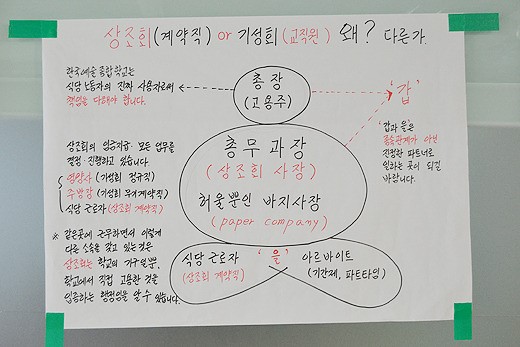 상조회(계약직) or 기성회(교직원) 왜? 다른가.
한국예술종합학교는
식당 노동자의 진짜 사용자로써
책임을 다해야 합니다.
총장
(고용주)
'갑'
'갑과 을'은
종속관계가 아닌
진정한 파트너로
일하는 곳이 되길
바랍니다.
상조회의 임금지급 모든 업무를
결정·진행하고 있습니다
영양사 (기성회 정규직)
주방장 (기성회 무기계약직)
식당 근로자 (상조회 계약직)
총무과장
(상조회 사장)
허울뿐인 바지사장
(paper company)
※ 같은곳에 근무하면서 이렇게
다른 소속을 갖고 있는것은
상조회는 학교의 기구일뿐.
학교에서 직접 고용한 것을
입증하는 행정임을 알 수 있습니다.
식당 근로자
(상조회 계약직)
'을'
아르바이트
(기간제, 파트타임)